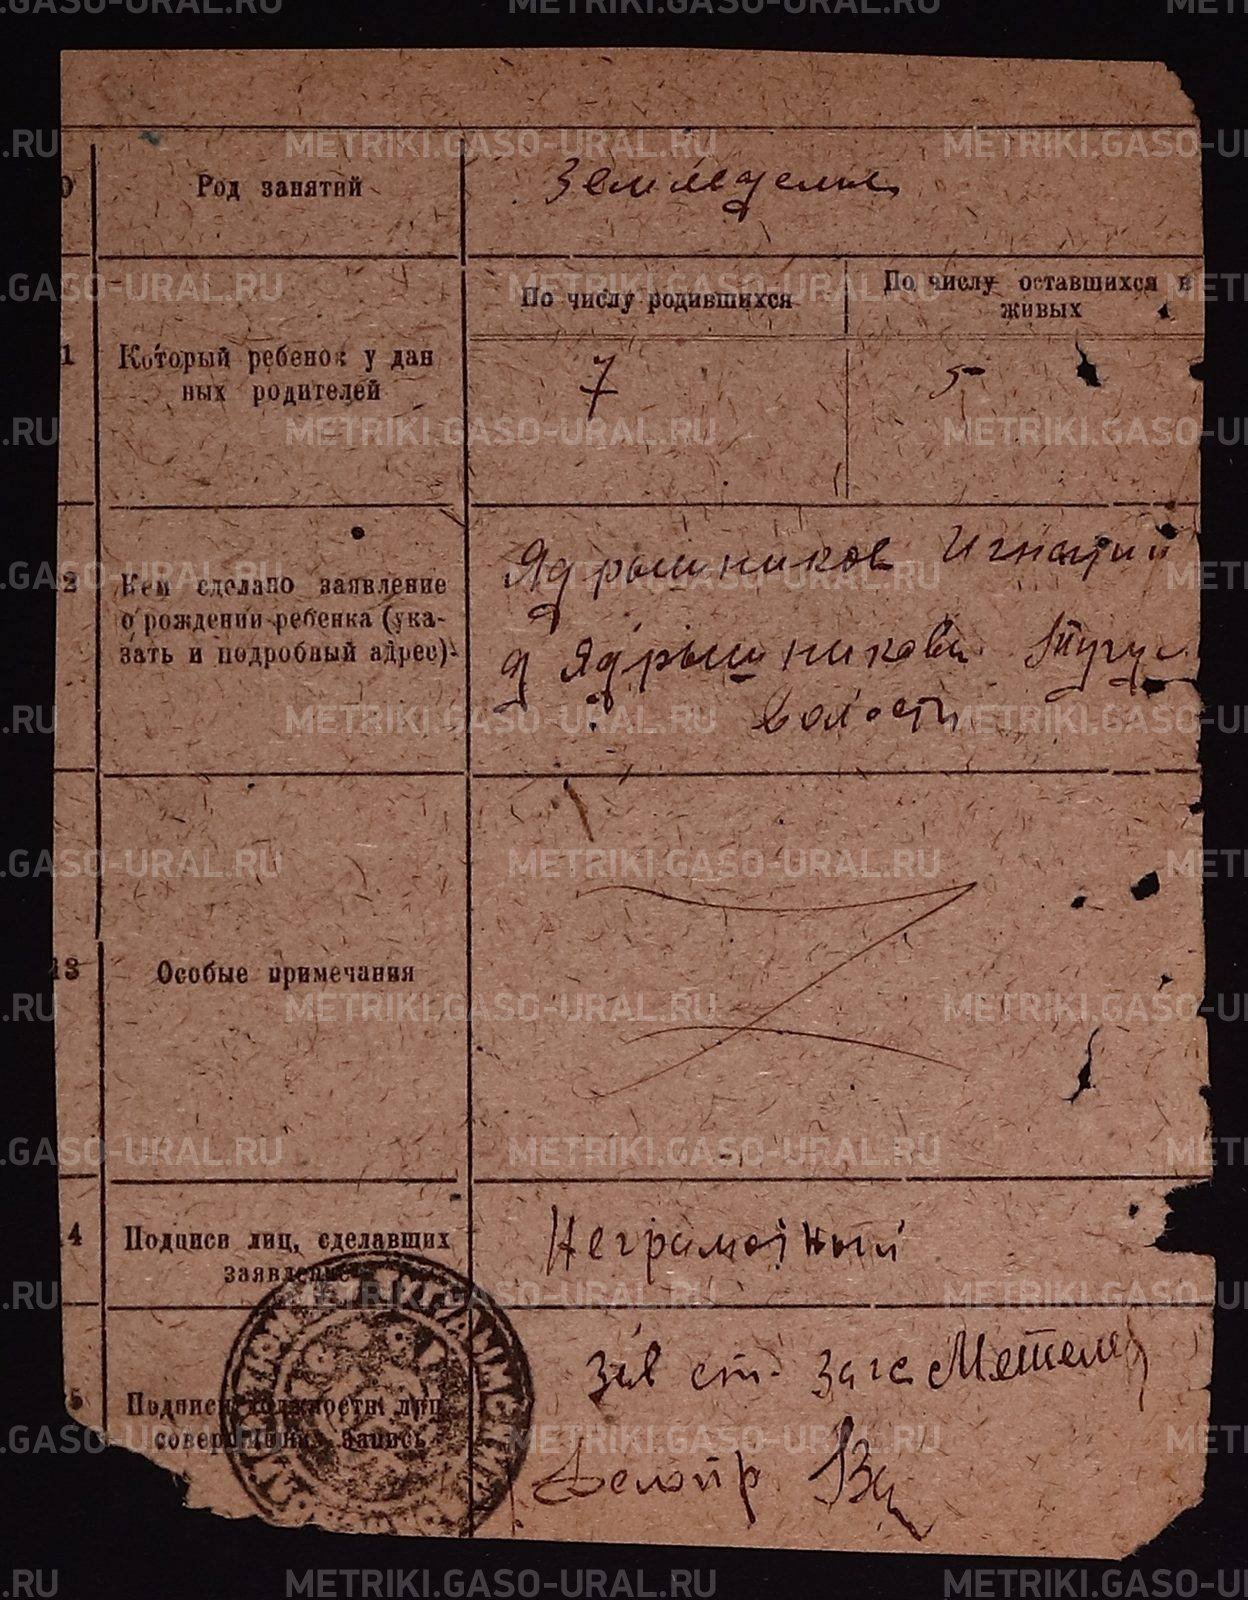 METRIKI.GASO-URAL.RU
0
Род занятий
Земледелие
По числу родившихся
По числу оставшихся в
живых
1
Который ребенок у дан
ных родителей
7
5
2
Кем сделано заявление
о рождении ребенка (ука-
зать и подробный адрес)
Ядрышников Игнатий
д Ядрышникова Тугу
волости
13
Особые примечания
4
Подписи лиц, сделавших
заявление
Неграмотный
5
Подписи должности лиц,
совершивших запись
Зав ст. Загс
Делопр